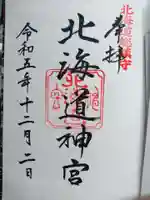 北海道総鎮守
奉拝
北海道神宮
令和五年十二月二日